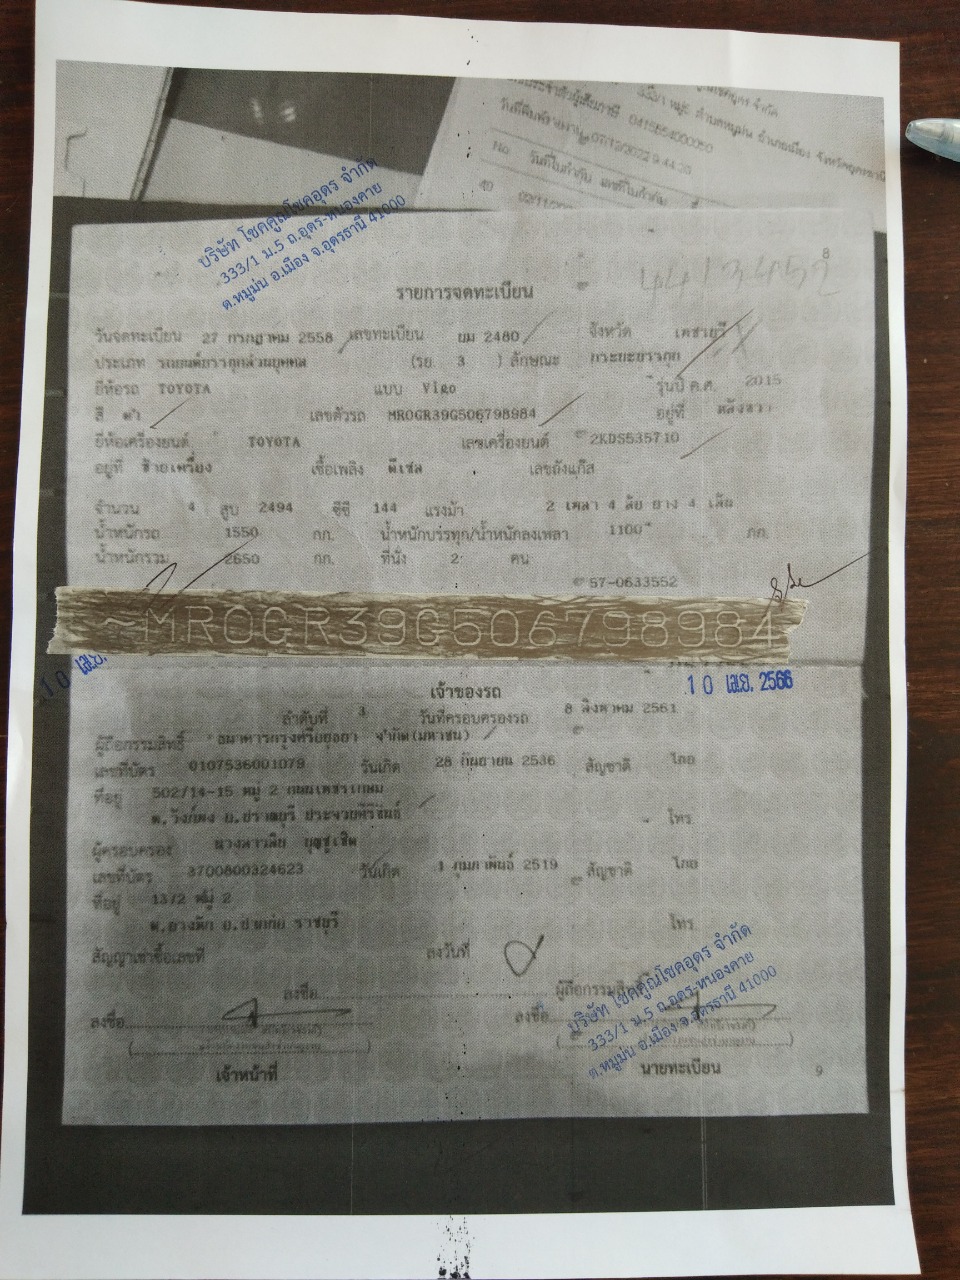 จำกัด
333/1 หมู่5 ตำบลหมูม่น อำเภอเมือง จังหวัดอุดรธานี
ประจำตัวผู้เสียภาษี
วันที่พิมพ์รายงาน 07/12/2022 9:44:20
No. วันที่ใบกำกับ เลขที่ใบกำกับ
บริษัท โชคคูณโชคอุดร จำกัด
333/1 ม.5 ถ.อุดร-หนองคาย
ต.หมูม่น อ.เมือง จ.อุดรธานี 41000
8
รายการจดทะเบียน
วันจดทะเบียน 27 กรกฎาคม 2558 เลขทะเบียน ยม 2480 จังหวัด เพชรบุรี
ประเภท รถยนต์บรรทุกส่วนบุคคล (รย. 3 ) ลักษณะ กระบะบรรทุก
ยี่ห้อรถ TOYOTA แบบ Vigo รุ่นปี ค.ศ. 2015
สี ดำ เลขตัวรถ MROGR39G506798984 อยู่ที่
ยี่ห้อเครื่องยนต์ TOYOTA เลขเครื่องยนต์ 2KDS535710
อยู่ที่ ซ้ายเครื่อง เชื้อเพลิง ดีเซล เลขถังแก๊ส
จำนวน 4 สูบ 2494 ซีซี 144 แรงม้า 2 เพลา 4 ล้อ ยาง 4 เส้น
น้ำหนักรถ 1550 กก. น้ำหนักบรรทุก/น้ำหนักลงเพลา 1100 กก.
น้ำหนักรวม 2650 กก. ที่นั่ง 2 คน
57-0633552
~MROGR39G506798984
10 เม.ย.
10 เม.ย. 2566
เจ้าของรถ
ลำดับที่ 3 วันที่ครอบครองรถ 8 สิงหาคม 2561
ผู้ถือกรรมสิทธิ์ ธนาคารกรุงศรีอยุธยา จำกัด(มหาชน)
เลขที่บัตร 0107536001079 วันเกิด 28 กันยายน 2536 สัญชาติ ไทย
ที่อยู่ 502/14-15 หมู่ 2 ถนนเพชรเกษม
ต.วังก์พง อ.ปราณบุรี ประจวบคีรีขันธ์ โทร
ผู้ครอบครอง
เลขที่บัตร 3700800324623 วันเกิด 1 กุมภาพันธ์ 2519 สัญชาติ ไทย
ที่อยู่ 137/2 หมู่ 2
ราชบุรี โทร
สัญญาเช่าซื้อเลขที่ ลงวันที่
ลงชื่อ ผู้ถือกรรมสิทธิ์
ลงชื่อ ลงชื่อ
เจ้าหน้าที่ นายทะเบียน
บริษัท โชคคูณโชคอุดร จำกัด
333/1 ม.5 ถ.อุดร-หนองคาย
ต.หมูม่น อ.เมือง จ.อุดรธานี 41000
9